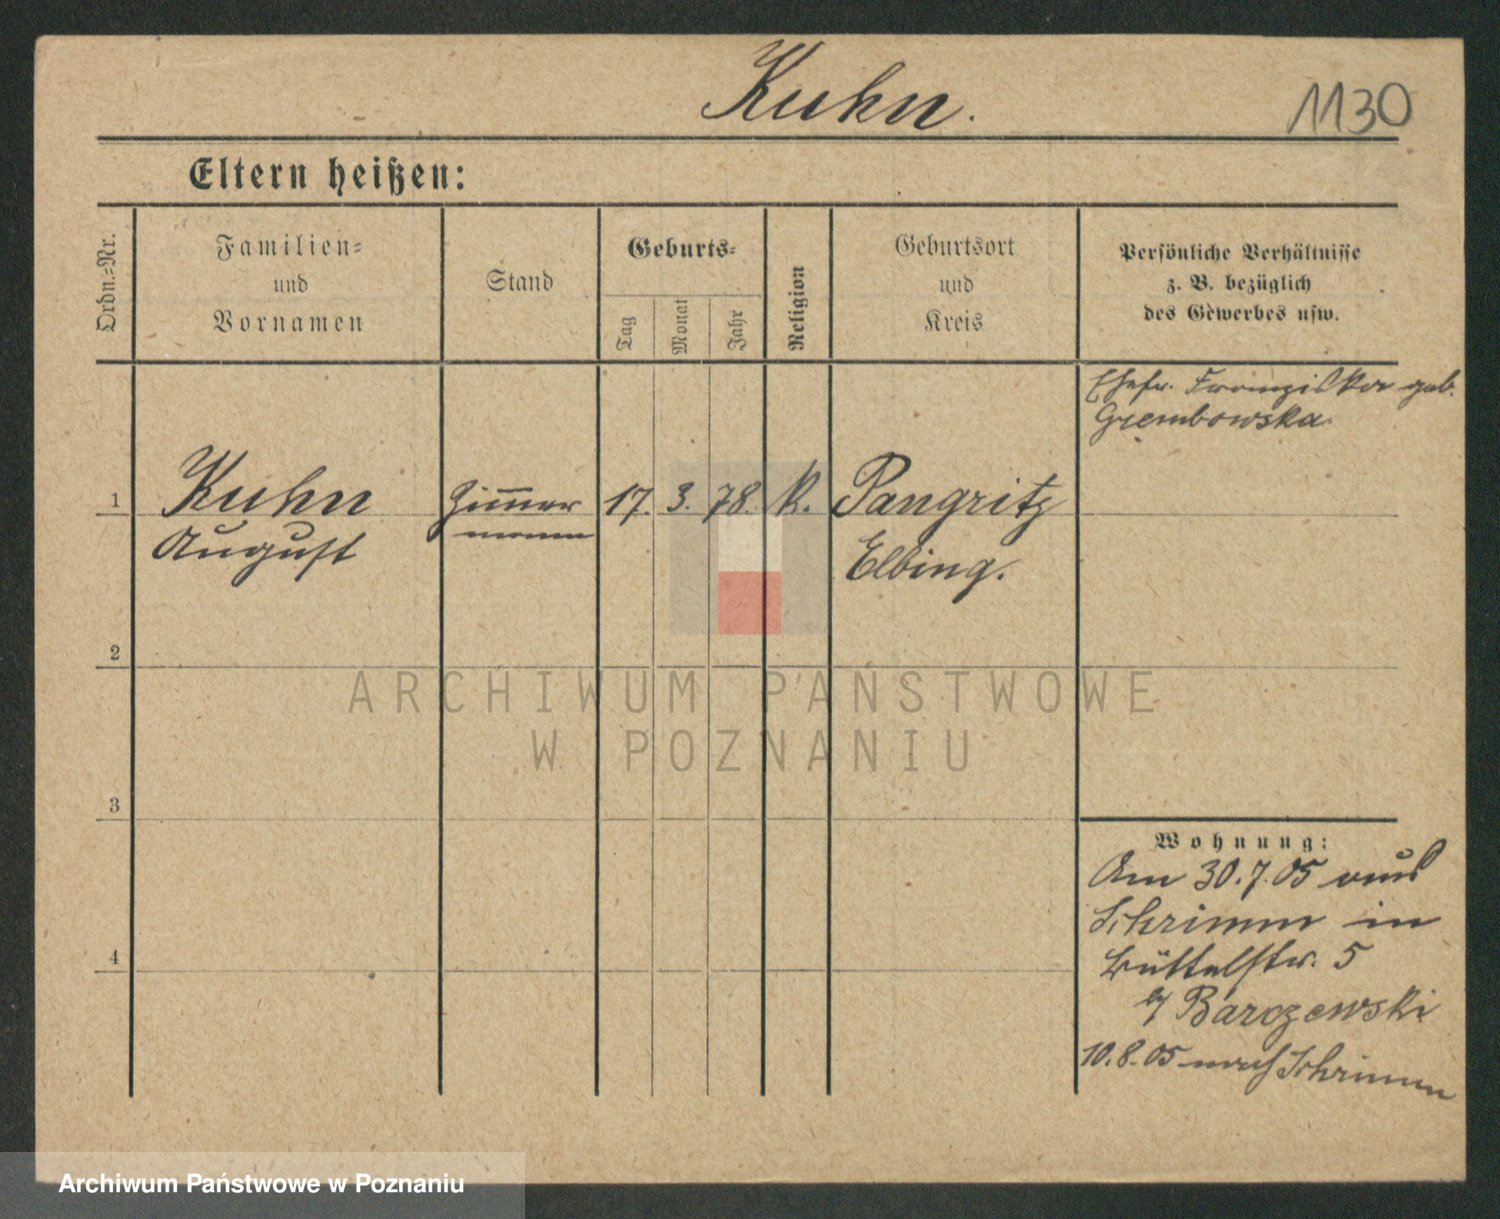 Kuhn.
1130
Eltern heißen:
Ordn.=Nr.
Familien=
und
Vornamen
Stand
Geburts=
Tag
Monat
Jahr
Religion
Geburtsort
und
Kreis
Persönliche Verhältnisse
z. B. bezüglich
des Gewerbes usw.
Ehefr. Franziska geb.
Grembowska.
1
Kuhn
August
Zimmer
mann
17.
3.
78.
k.
Pangritz
Elbing.
2
ARCHIWUM PAŃSTWOWE
W POZNANIU
3
Wohnung:
Am 30.7.05 aus
Schrimm in
Büttelstr. 5
b/ Barczewski
4
10.8.05 nach Schrimm
Archiwum Państwowe w Poznaniu